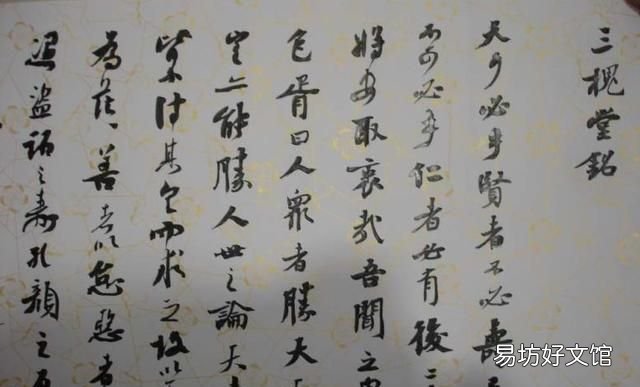 三槐堂銘
天可必乎賢者不必
不可必乎仁者必有後
將安取衷哉吾聞之
包胥曰人衆者勝天
定亦能勝人世之論天
皆不待其定而求之故以
為茫茫善者以怠惡者
盜跖之壽孔顏之
易坊好文馆